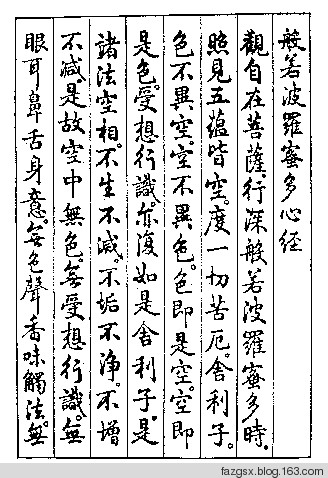 般若波羅蜜多心經
觀自在菩薩。行深般若波羅蜜多時。
照見五蘊皆空。度一切苦厄。舍利子。
色不異空。空不異色。色即是空。空即
是色。受想行識。亦復如是舍利子。是
諸法空相。不生不滅。不垢不淨。不增
不減。是故空中無色。無受想行識。無
眼耳鼻舌身意。無色聲香味觸法。無
fazgsx.blog.163.com